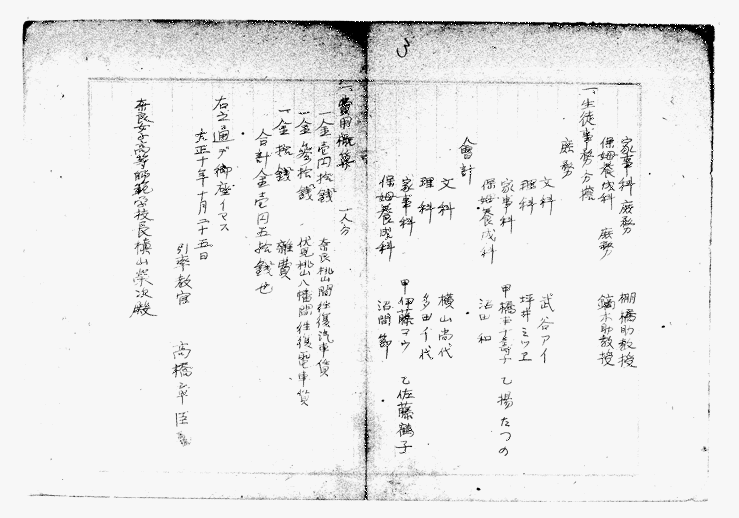 3
家事科 庶務 棚橋助教授
保姆養成科 庶務 鏑木助教授
一、生徒事務分擔
庶務
文科 武谷アイ
理科 坪井ミツヱ
家事科 甲 橋本壽子 乙 揚たつの
保姆養成科 沼田和
會計
文科 横山尚代
理科 多田イ代
家事科 甲 伊藤マウ 乙 佐藤鶴子
保姆養成科 沼間節
一、費用概算 一人分
一金壱円拾銭 奈良桃山間往復汽車賃
一金参拾銭 伏見桃山八幡間往復電車賃
一金拾銭 雑費
合計金壱円五拾銭也
右之通デ御座イマス
大正十年十月二十五日
引率教官 高橋
奈良女子高等師範学校長槇山栄次殿